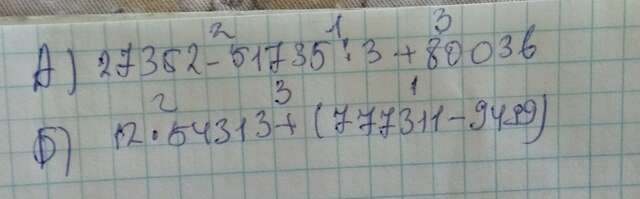 2 1 3
А) 27352 - 51735 : 3 + 80036
2 3 1
Б) 12 · 54313 + (777311 - 9499)